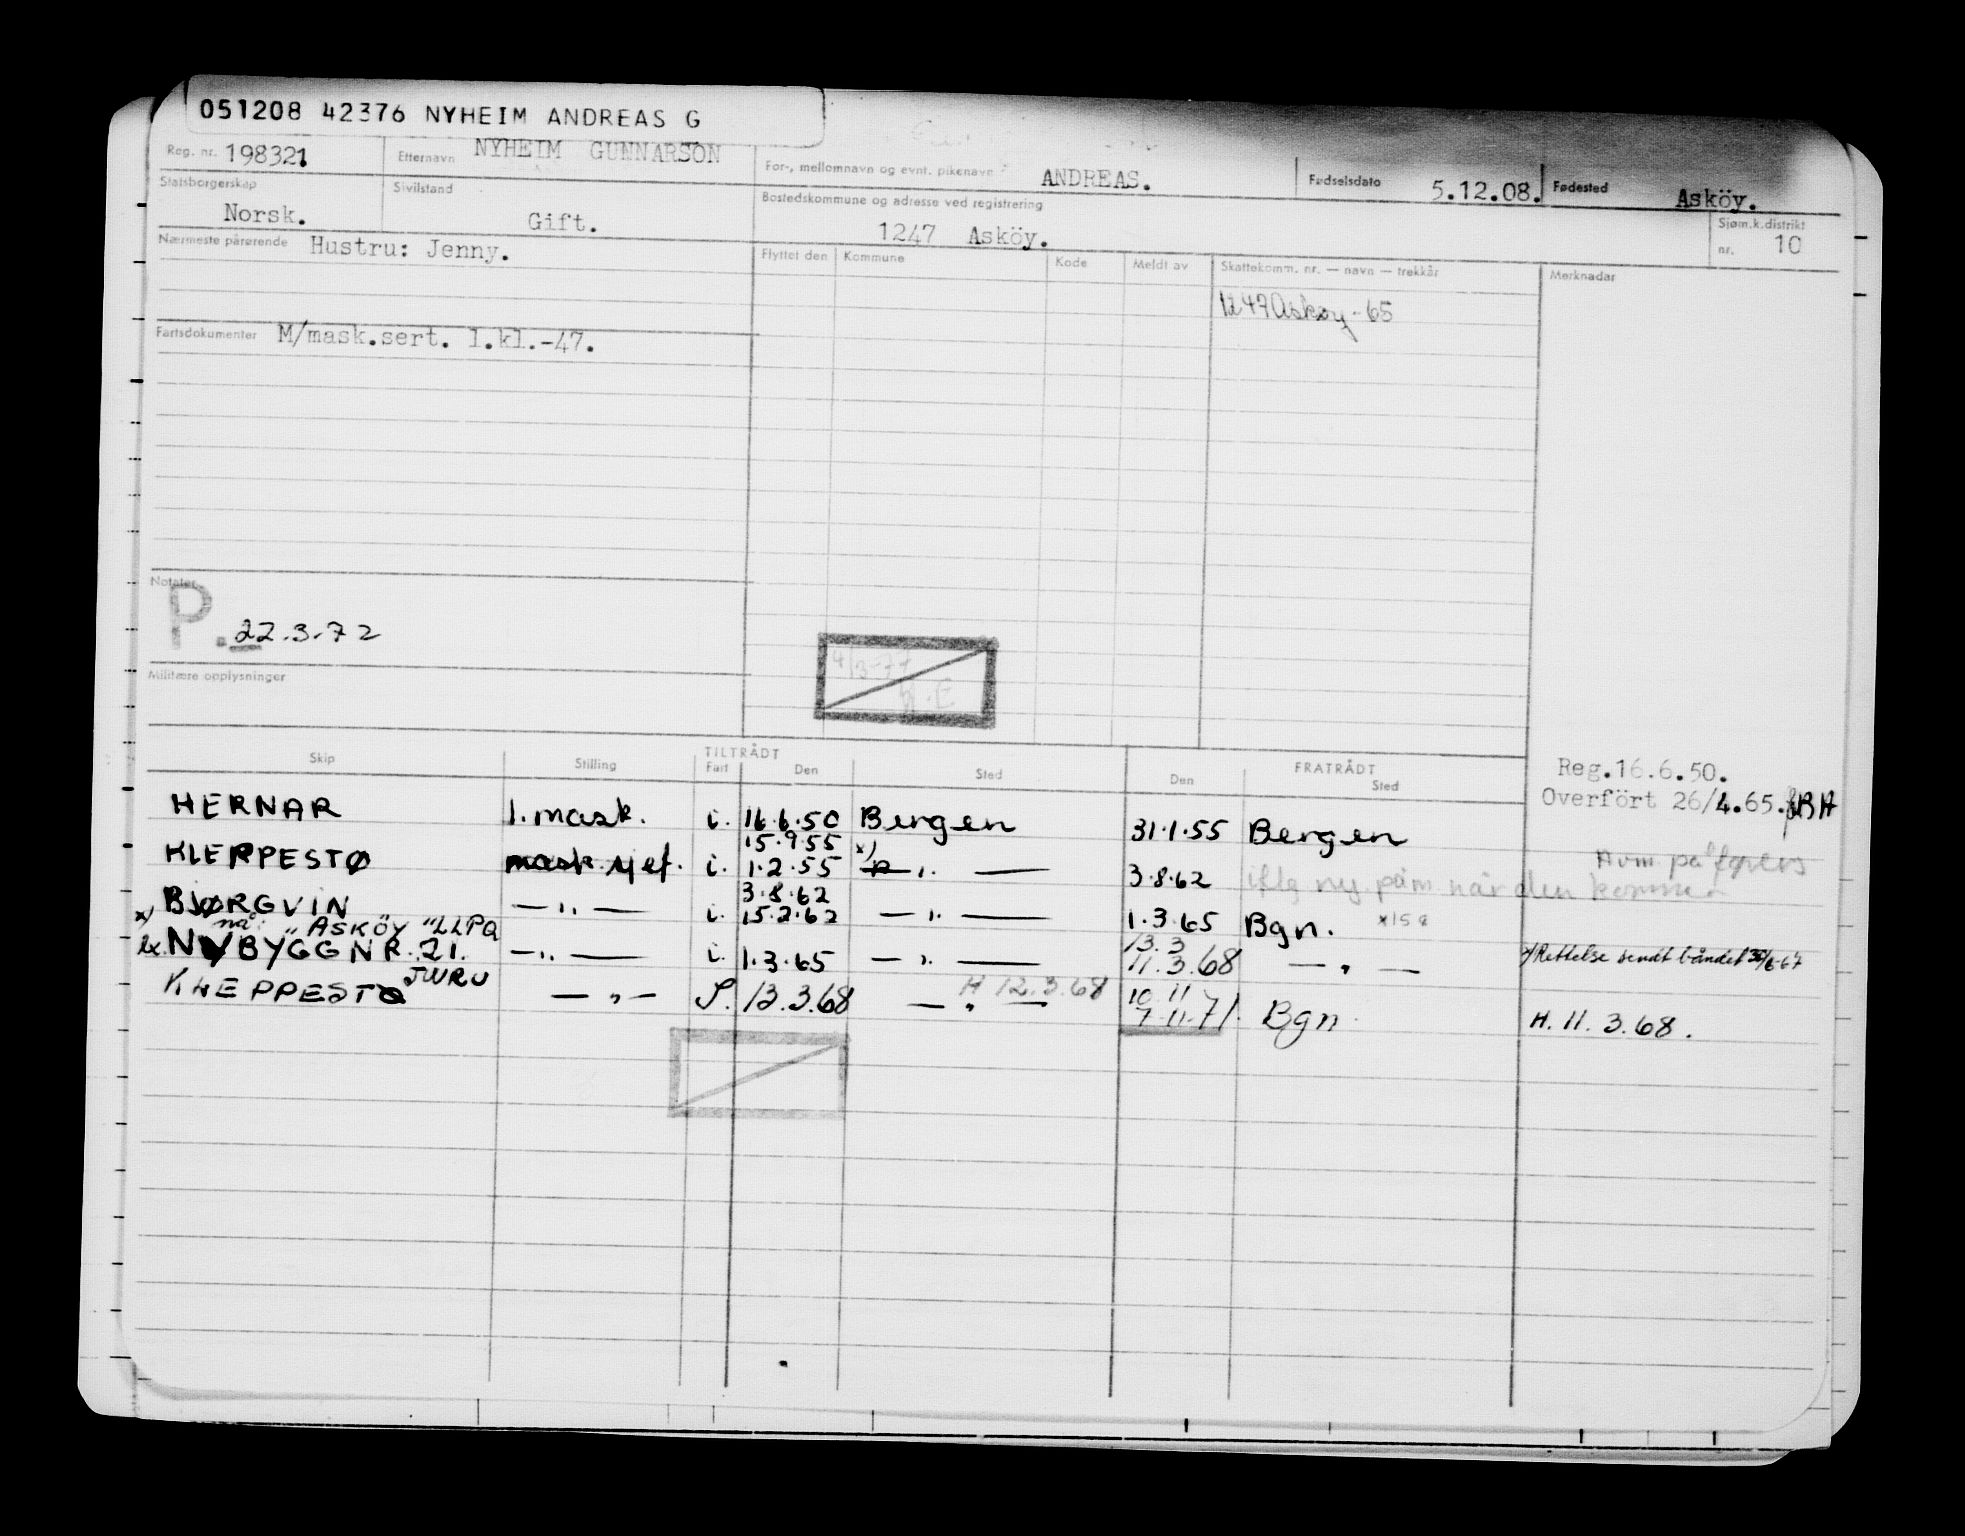 051208 42376 NYHEIM ANDREAS G
Reg. nr. 198321 Etternavn NYHEIM GUNNARSON For-, mellomnavn og evnt. pikenavn ANDREAS. Fødselsdato 5.12.08. Fødested Asköy.
Statsborgerskap Norsk. Sivilstand Gift. Bostedskommune og adresse ved registrering 1247 Asköy. Sjøm.k.distrikt nr. 10
Nærmeste pårørende Hustru: Jenny. Flyttet den Kommune Kode Meldt av Skattekomm. nr. — navn — trekkår Merknader
1247 Askøy-65
Fartsdokumenter M/mask.sert. 1.kl.-47.
Notater
P. 22.3.72
4/3-77
Militære opplysninger
TILTRÅDT FRATRÅDT
Skip Stilling Fart Den Sted Den Sted
Reg.16.6.50.
Overfört 26/4.65.
HERNAR 1. mask. i. 16.6.50 Bergen 31.1.55 Bergen
15.9.55 x)
KLEPPESTØ i. 1.2.55 — " — 3.8.62 iflg ny påm når den kommer
3.8.62
BJØRGVIN — " — i. 15.2.62 — " — 1.3.65 Bgn.
x) nå: "ASKÖY" LLPQ 13.3
NYBYGG NR. 21. — " — i. 1.3.65 — " — 11.3.68 — " — x) Rettelse sendt båndet 30/6-67
JWRU H 12.3.68 10.11
KLEPPESTØ — " — 13.3.68 — " — 7.11.71. Bgn H. 11.3.68.